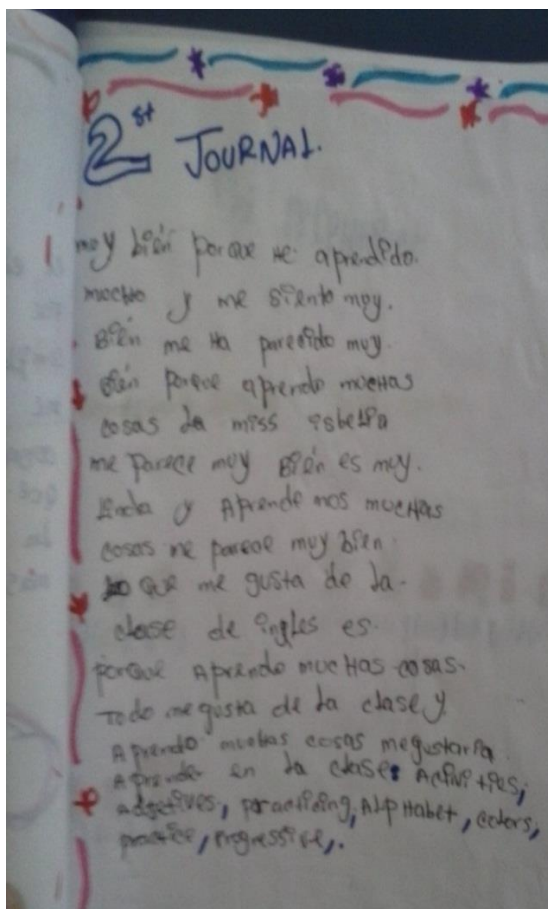 2st JOURNAL.
moy bién porque He aprendido.
mocHo y me siento moy.
Bién me Ha parecido moy.
Bién porque aprendo mucHas
cosas La miss isbelia
me parece moy Bién es moy.
Linda y Aprende mos mucHas
cosas me parece muy bien
Lo que me gusta de La.
clase de ingles es.
porque Aprendo mucHas cosas.
Todo me gusta de La clase y
Aprendo muchas cosas megustaria
Aprender en La clase: Activities,
Adjetives, practiding, AlpHabet, colors,
practice, progressive,.